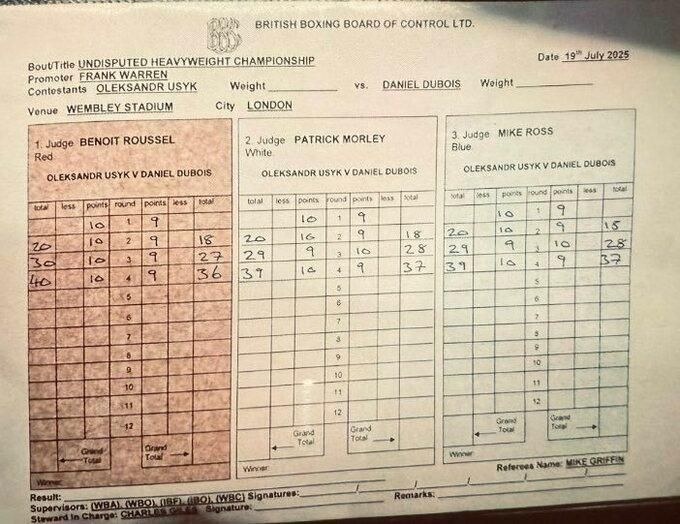 BRITISH BOXING BOARD OF CONTROL LTD.
Bout/Title UNDISPUTED HEAVYWEIGHT CHAMPIONSHIP Date 19th July 2025
Promoter FRANK WARREN
Contestants OLEKSANDR USYK Weight vs. DANIEL DUBOIS Weight
Venue WEMBLEY STADIUM City LONDON
1. Judge BENOIT ROUSSEL 2. Judge PATRICK MORLEY 3. Judge MIKE ROSS
Red. White. Blue.
OLEKSANDR USYK V DANIEL DUBOIS OLEKSANDR USYK V DANIEL DUBOIS OLEKSANDR USYK V DANIEL DUBOIS
total less points round points less total total less points round points less total total less points round points less total
10 1 9 10 1 9 10 1 9
20 10 2 9 18 20 10 2 9 18 20 10 2 9 18
30 10 3 9 27 29 9 3 10 28 29 9 3 10 28
40 10 4 9 36 39 10 4 9 37 39 10 4 9 37
5 5 5
6 6 6
7 7 7
8 8 8
9 9 9
10 10 10
11 11 11
12 12 12
Grand Total Grand Total Grand Total Grand Total Grand Total Grand Total
Winner Winner Winner
Referees Name: MIKE GRIFFIN
Result:
Supervisors: (WBA), (WBO), (IBF), (IBO), (WBC) Signatures: Remarks:
Steward in Charge: CHARLES GILES Signature: